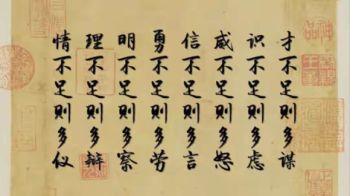 才不足则多谋
识不足则多虑
威不足则多怒
信不足则多言
勇不足则多劳
明不足则多察
理不足则多辩
情不足则多仪